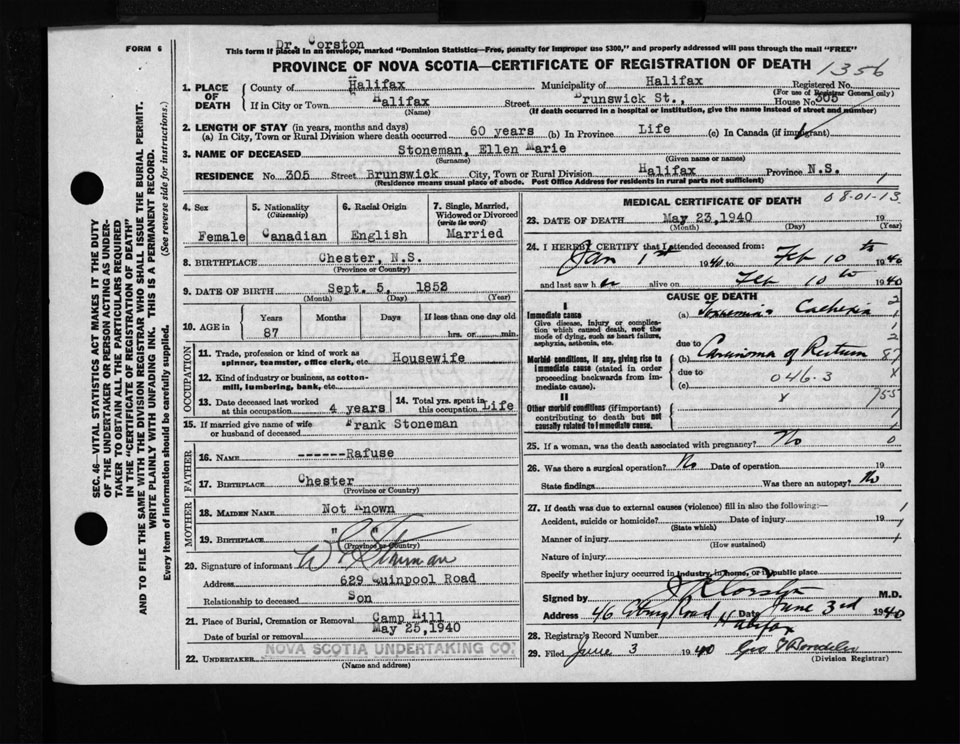 FORM 6
Dr. Corston
This form if placed in an envelope, marked "Dominion Statistics—Free, penalty for improper use $300," and properly addressed will pass through the mail "FREE"
PROVINCE OF NOVA SCOTIA—CERTIFICATE OF REGISTRATION OF DEATH
1356
1. PLACE OF DEATH
County of Halifax Municipality of Halifax Registered No.
(For use of Registrar General only)
If in City or Town Halifax Street Brunswick St., House No. 305
(Name) (If death occurred in a hospital or institution, give the name instead of street and number)
2. LENGTH OF STAY (in years, months and days)
(a) In City, Town or Rural Division where death occurred 60 years (b) In Province Life (c) In Canada (if immigrant)
3. NAME OF DECEASED Stoneman, Ellen Marie
(Surname) (Given name or names)
RESIDENCE No. 305 Street Brunswick City, Town or Rural Division Halifax Province N.S.
(Residence means usual place of abode. Post Office Address for residents in rural parts not sufficient)
1
4. Sex
Female
5. Nationality
(Citizenship)
Canadian
6. Racial Origin
English
7. Single, Married, Widowed or Divorced
(write the word)
Married
8. BIRTHPLACE Chester, N.S.
(Province or Country)
9. DATE OF BIRTH Sept. 5, 1852
(Month) (Day) (Year)
10. AGE in
Years Months Days If less than one day old
87 hrs. or min.
OCCUPATION
11. Trade, profession or kind of work as spinner, teamster, office clerk, etc. Housewife
12. Kind of industry or business, as cotton-mill, lumbering, bank, etc.
13. Date deceased last worked at this occupation 4 years
14. Total yrs. spent in this occupation Life
15. If married give name of wife or husband of deceased Frank Stoneman
FATHER
16. NAME -------Rafuse
17. BIRTHPLACE Chester
(Province or Country)
MOTHER
18. MAIDEN NAME Not Known
19. BIRTHPLACE " "
(Province or Country)
20. Signature of informant Stoneman
Address 629 Quinpool Road
Relationship to deceased Son
21. Place of Burial, Cremation or Removal Camp Hill
Date of burial or removal May 25, 1940
22. UNDERTAKER NOVA SCOTIA UNDERTAKING CO.
(Name and address)
MEDICAL CERTIFICATE OF DEATH
08-01-13
23. DATE OF DEATH May 23, 1940 19
(Month) (Day) (Year)
24. I HEREBY CERTIFY that I attended deceased from:
Jan 1st 1940 to Feb 10th 1940
and last saw her alive on Feb 10th 1940
CAUSE OF DEATH
I
Immediate cause
Give disease, injury or complication which caused death, not the mode of dying, such as heart failure, asphyxia, asthenia, etc.
(a) Cachexia
due to
Morbid conditions, if any, giving rise to immediate cause (stated in order proceeding backwards from immediate cause).
(b) Carcinoma of Rectum
due to
(c) 046.3
II
Other morbid conditions (if important) contributing to death but not causally related to immediate cause.
25. If a woman, was the death associated with pregnancy? No 0
26. Was there a surgical operation? No Date of operation 19
State findings Was there an autopsy? No
27. If death was due to external causes (violence) fill in also the following:—
Accident, suicide or homicide? Date of injury 19
(State which)
Manner of injury
(How sustained)
Nature of injury
Specify whether injury occurred in industry, in home, or in public place
Signed by Corston M.D.
Address 46 Road Halifax Date June 3rd 1940
28. Registrar's Record Number
29. Filed June 3 1940 Geo
(Division Registrar)
SEC. 46—VITAL STATISTICS ACT MAKES IT THE DUTY
OF THE UNDERTAKER OR PERSON ACTING AS UNDER-
TAKER TO OBTAIN ALL THE PARTICULARS REQUIRED
IN THE "CERTIFICATE OF REGISTRATION OF DEATH"
AND TO FILE THE SAME WITH THE DIVISION REGISTRAR WHO SHALL ISSUE THE BURIAL PERMIT.
WRITE PLAINLY WITH UNFADING INK. THIS IS A PERMANENT RECORD.
Every item of information should be carefully supplied. (See reverse side for instructions.)